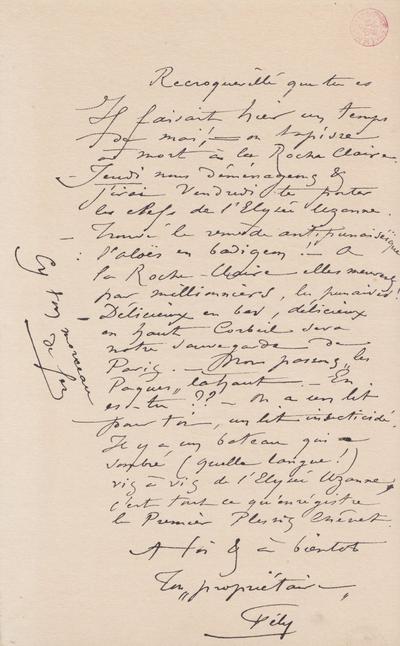 Recroquevillé que tu es
Il faisait hier un temps
de mai ! — on tapisse
à mort à la Roche Claire.
— Jeudi nous déménageons &
j'irai Vendredi te porter
les clefs de l'Elysée Uzanne.
— Trouvé le remède antipunaisique
: l'aloës en badigeon ! — A
la Roche-Claire elles meurent
par millionniers, les punaises !
Délicieux en bas, délicieux
en haut Corbeil sera
notre sauvegarde de
Paris. — Nous passons „les
Pâques„ là haut. — En
es-tu ?? — On a un lit
pour toi, un lit insecticidé.
Il y a un bateau qui a
sombré (quelle langue !)
vis à vis de l'Elysée Uzanne,
c'est tout ce qu'enrégistre
le Premier Plessis Chênet.
A toi & à bientôt
Ton „propriétaire„
Fély
morceau
de